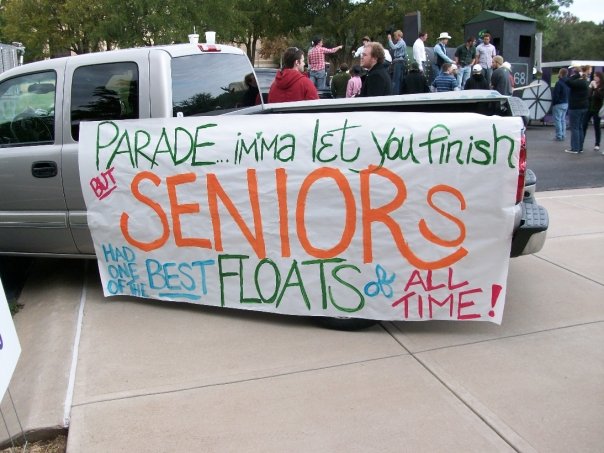 PARADE... imma let you finish
BUT
SENIORS
HAD ONE OF THE BEST FLOATS of ALL TIME!
68